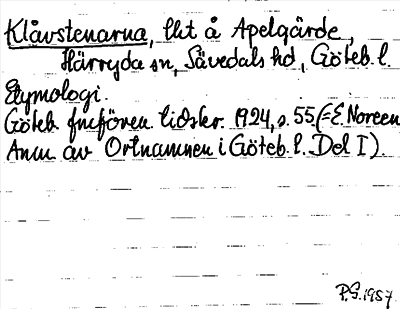 Klåvstenarna, lht å Apelgärde,
Härryda sn, Sävedals hd, Göteb. l.
Etymologi.
Göteb fmfören tidskr. 1924, s. 55 (= E Noreen
Anm av Ortnamnen i Göteb. l. Del I).
P.G. 1957